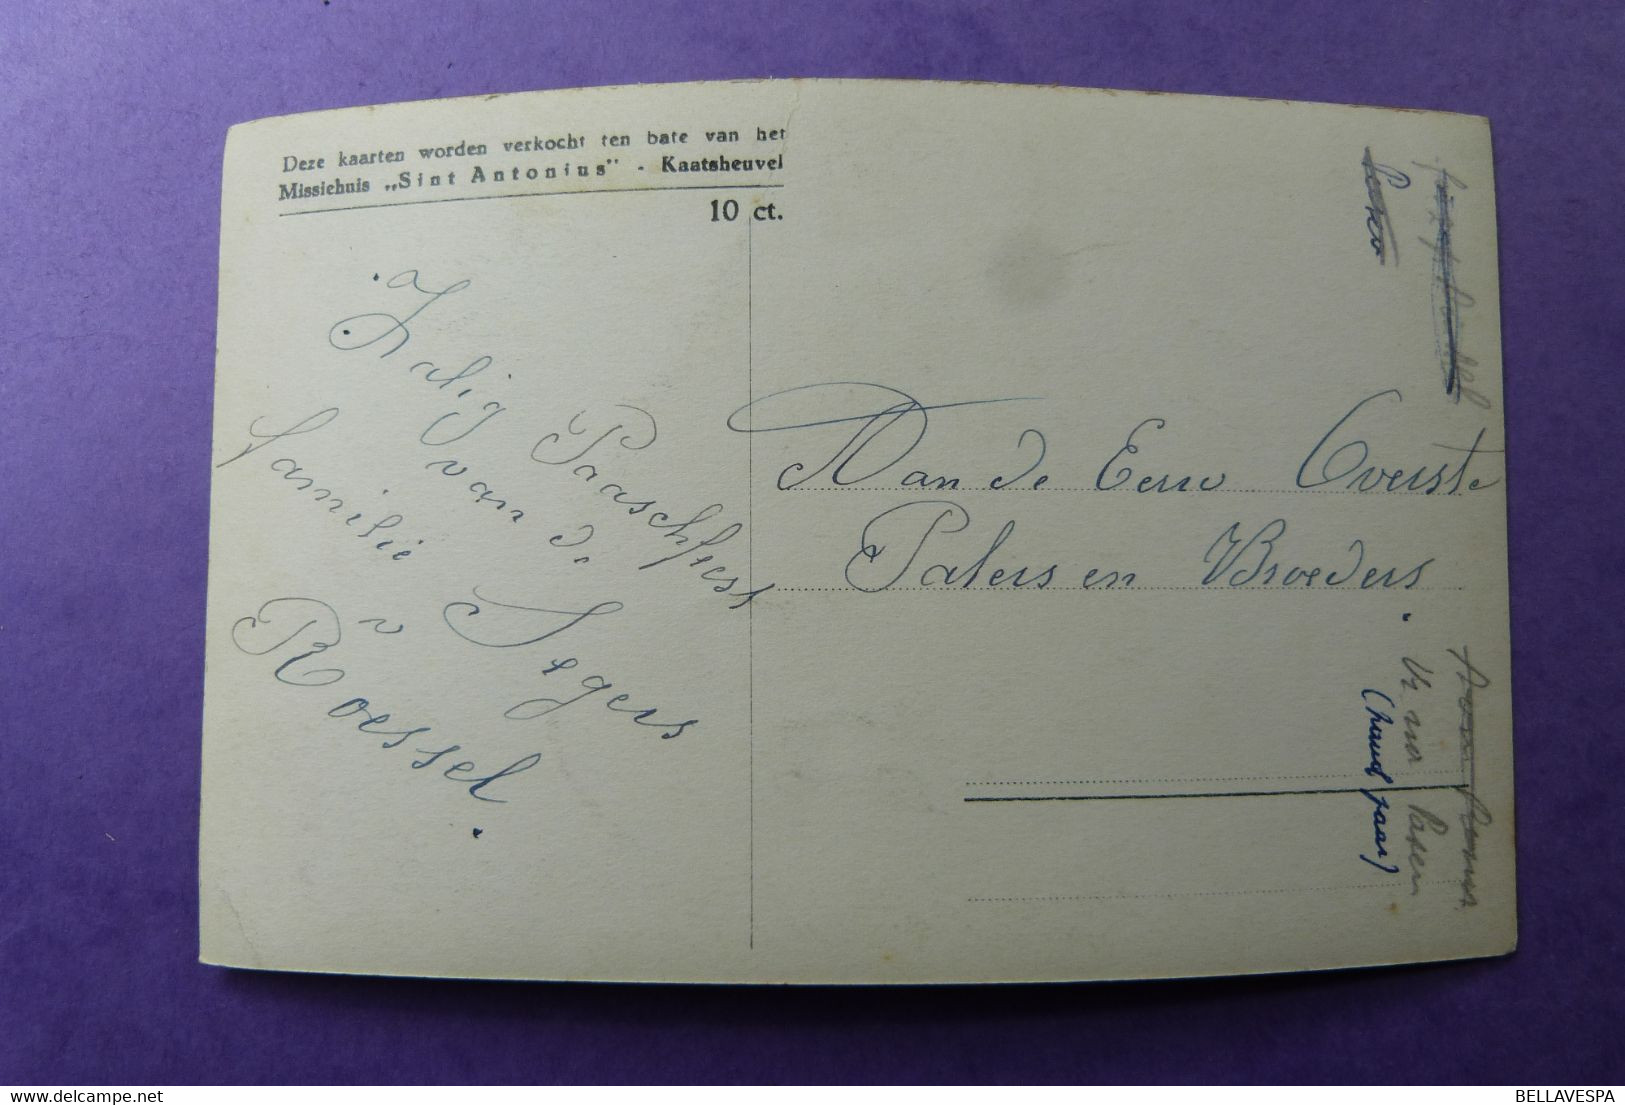 Deze kaarten worden verkocht ten bate van het
Missiehuis „Sint Antonius" - Kaatsheuvel
10 ct.
Zalig
Paaschfeest
van de
familie Segers
v
Roessel.
Aan de Eerw Overste
Paters en Broeders.
(hand paar)
BELLAVESPA